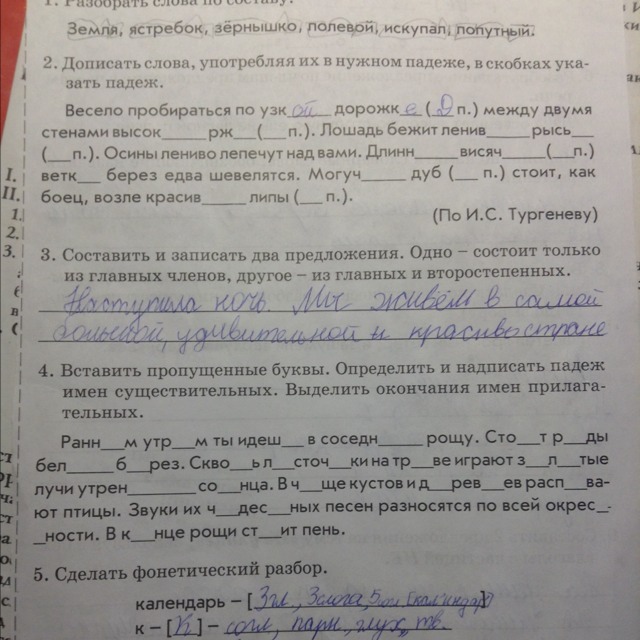 1. Разобрать слова по составу.
Земля, ястребок, зёрнышко, полевой, искупал, попутный.
2. Дописать слова, употребляя их в нужном падеже, в скобках ука-
зать падеж.
Весело пробираться по узкой дорожке (Д п.) между двумя
стенами высок____ рж__(__п.). Лошадь бежит ленив____ рысь__
(__п.). Осины лениво лепечут над вами. Длинн____ висяч____(__п.)
ветк__ берез едва шевелятся. Могуч____ дуб (__ п.) стоит, как
боец, возле красив____ липы (__ п.).
(По И.С. Тургеневу)
3. Составить и записать два предложения. Одно – состоит только
из главных членов, другое – из главных и второстепенных.
Наступила ночь. Мы живём в самой
большой, удивительной и красивы стране
4. Вставить пропущенные буквы. Определить и надписать падеж
имен существительных. Выделить окончания имен прилага-
тельных.
Ранн__м утр__м ты идеш__ в соседн____ рощу. Сто__т р__ды
бел____ б__рез. Скво__ь л__сточ__ки на тр__ве играют з__л__тые
лучи утрен____ со__нца. В ч__ще кустов и д__рев__ев расп__ва-
ют птицы. Звуки их ч__дес__ных песен разносятся по всей окрес_-
_ности. В к__нце рощи ст__ит пень.
5. Сделать фонетический разбор.
календарь – [3гл, 3слога, [кал'индар']
к – [К] – согл, парн, глух, тв.
I.
II.
1.
2.
3.